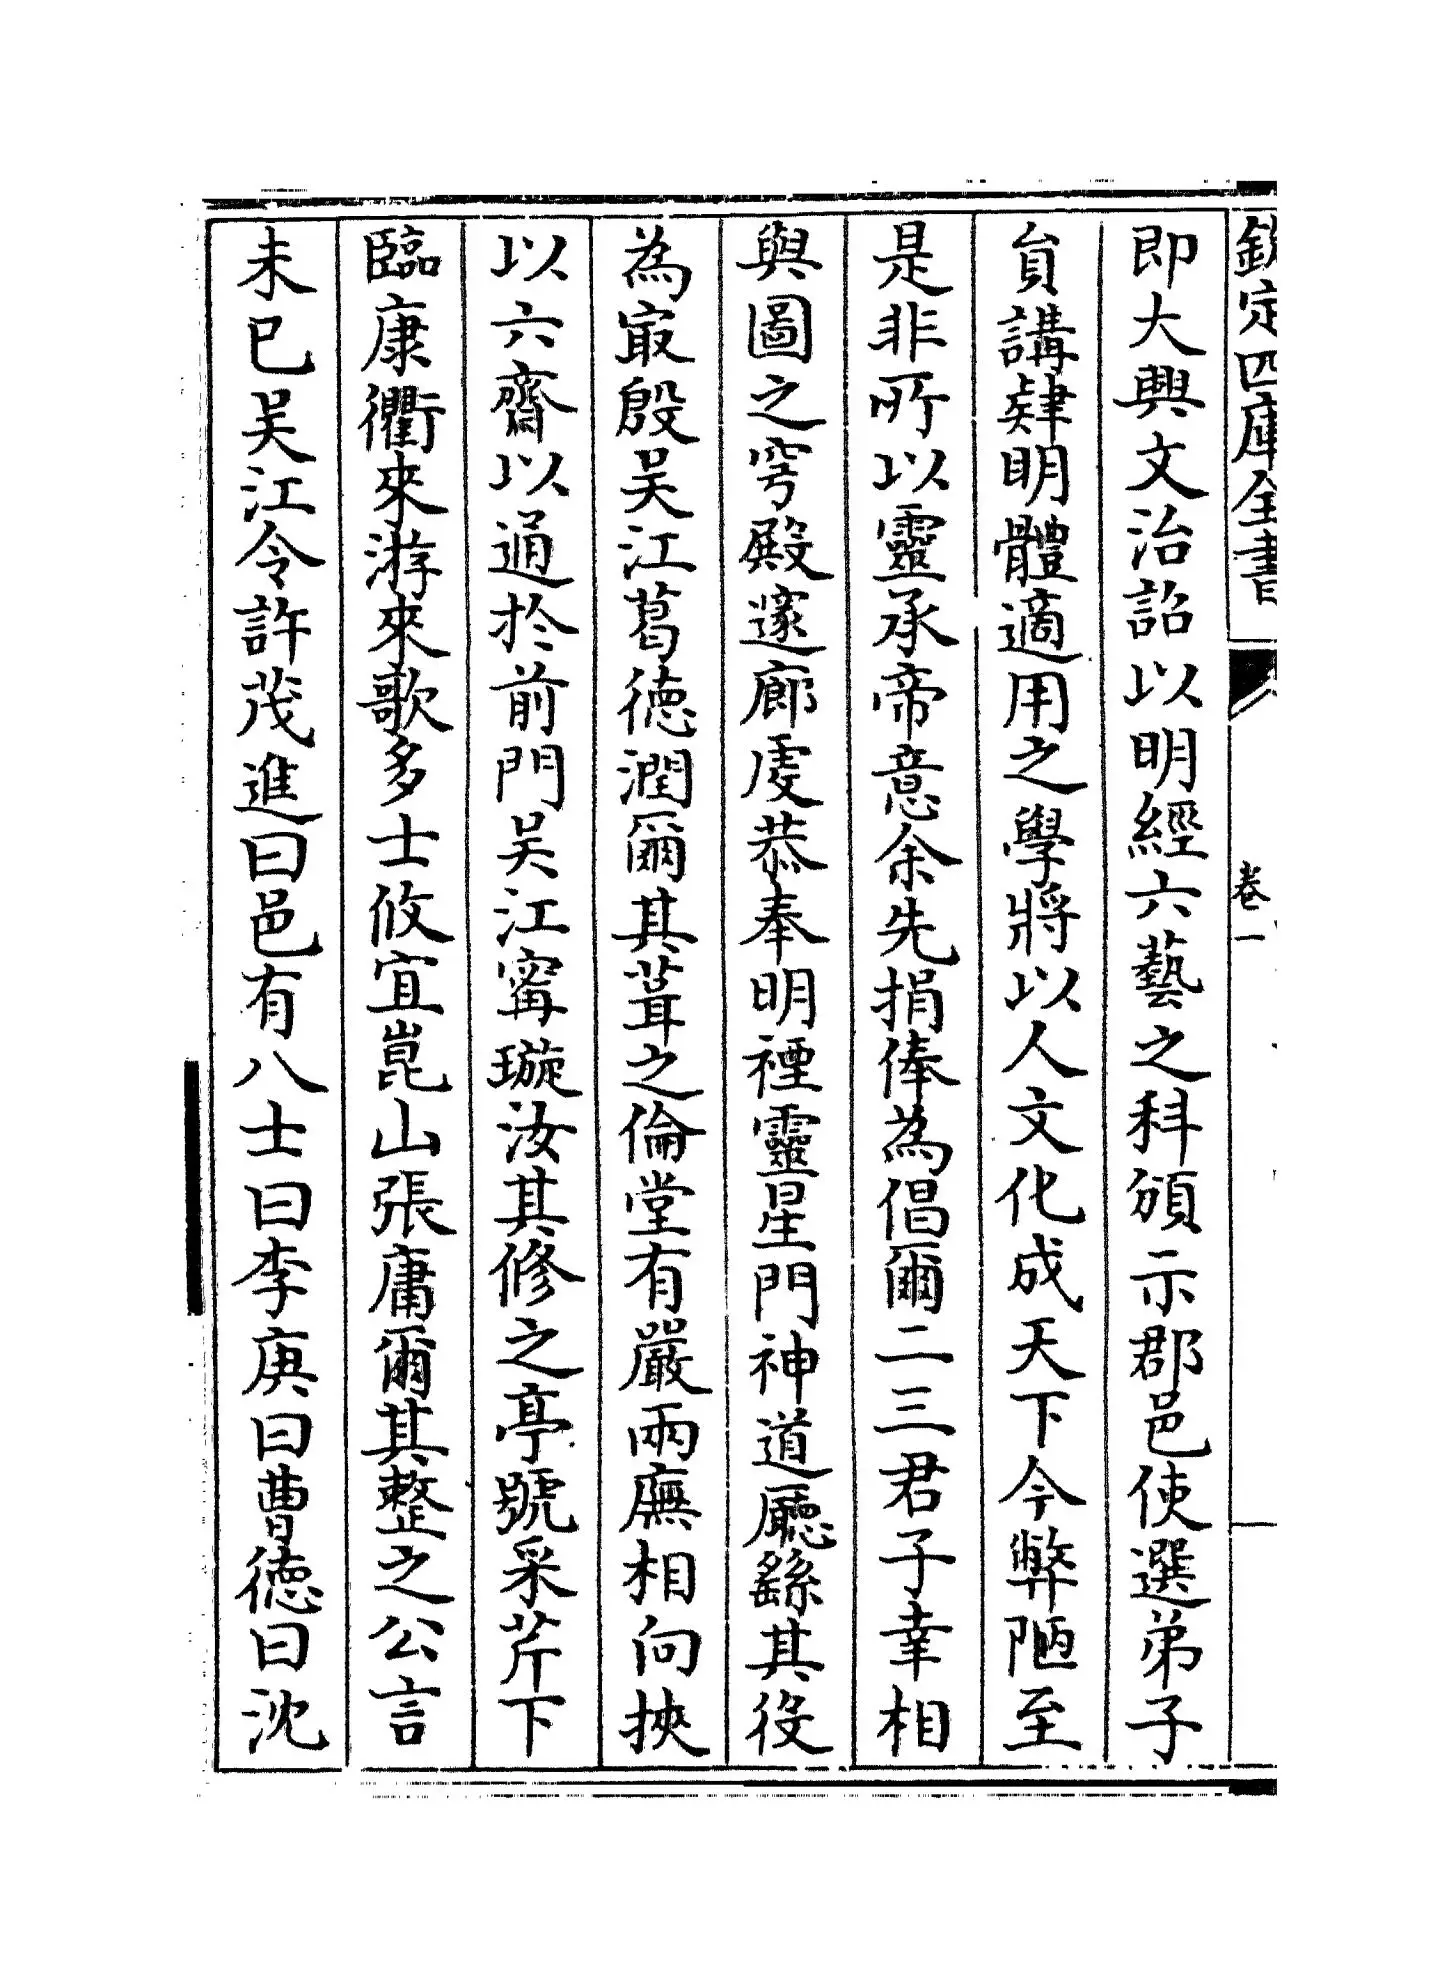 欽定四庫全書
卷一
即大興文治詔以明經六藝之科頒示郡邑使選弟子
貟講肄明體適用之學將以人文化成天下今弊陋至
是非所以靈承帝意余先捐俸為倡爾二三君子幸相
與圖之穹殿邃廊虔恭奉明禋靈星門神道廳繇其役
為㝡殷吴江葛德潤爾其葺之倫堂有嚴兩廡相向挾
以六齋以通於前門吴江甯璇汝其修之亭號采芹下
臨康衢來游來歌多士攸宜崑山張庸爾其整之公言
未已吴江令許茂進曰邑有八士曰李庚曰曹德曰沈